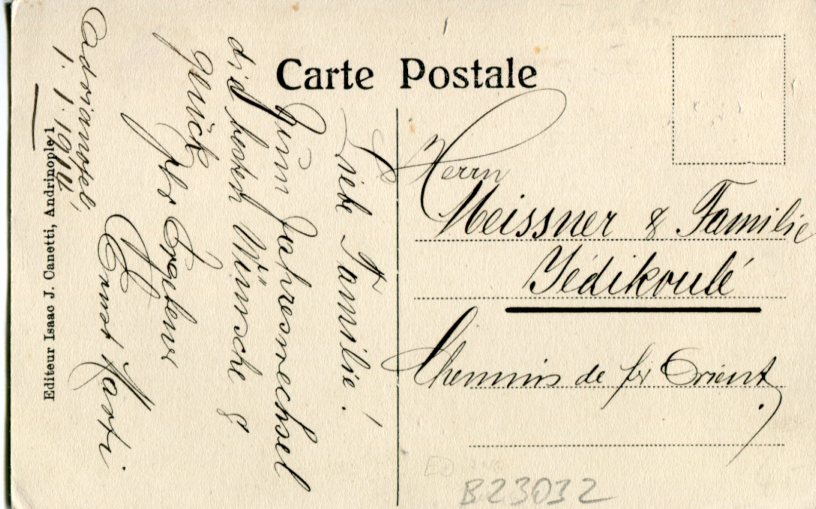 Carte Postale
Liebe Familie!
Zum Jahreswechsel
die besten Wünsche &
Ihr Ergebener
Ernst Marti
Adrianopel,
Editeur Isaac J. Canetti, Andrinople
Herrn
Meissner & Familie
Yédikoulé
Chemins de fer Orient.
B23032